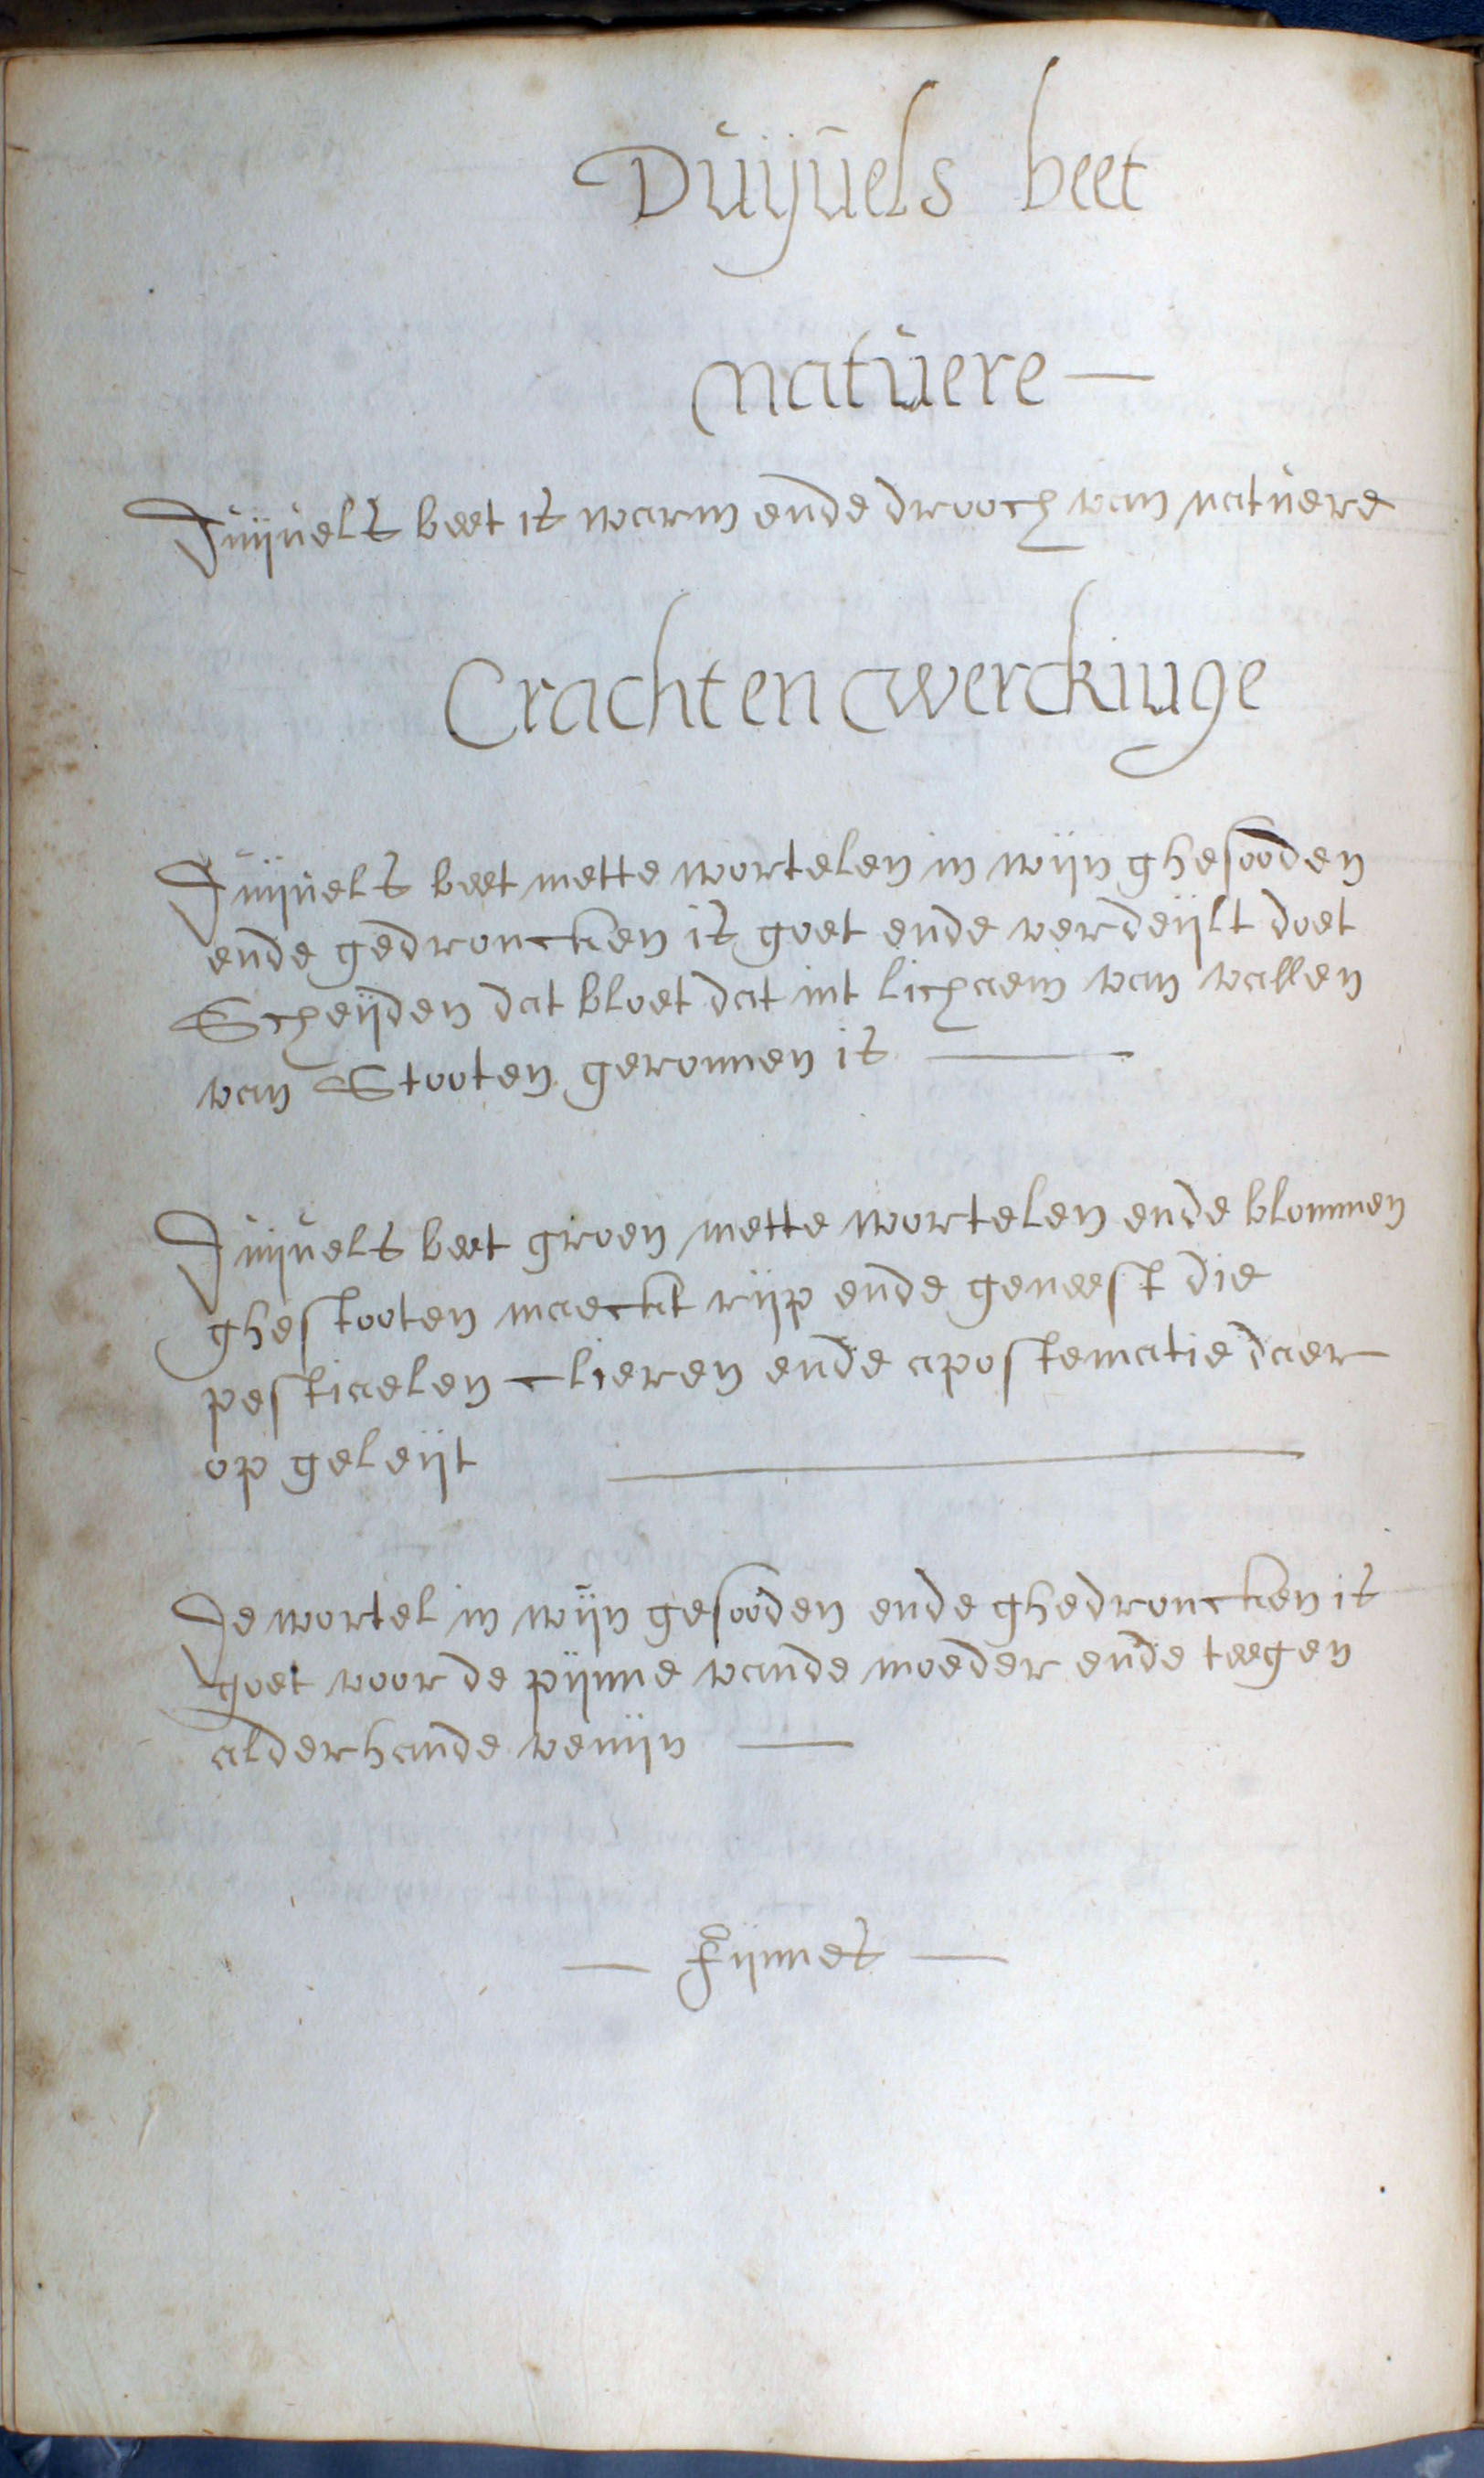 Duijuels beet
natuere
Duijuels beet is warm ende drooch van natuere
Cracht en werckinge
Duijuels beet mette wortelen in wijn ghesooden
ende gedroncken is goet ende verdeijlt doet
Scheijden dat bloet dat int lichaem van vallen
van Stooten geronnen is
Duijuels beet groen mette wortelen ende blommen
ghestooten maeckt rijp ende geneest die
pestiaelen clieren ende apostematie daer
op geleijt
De wortel in wijn gesooden ende ghedroncken is
goet voor de pijnne vande moeder ende teegen
alderhande venijn
Fijnnes